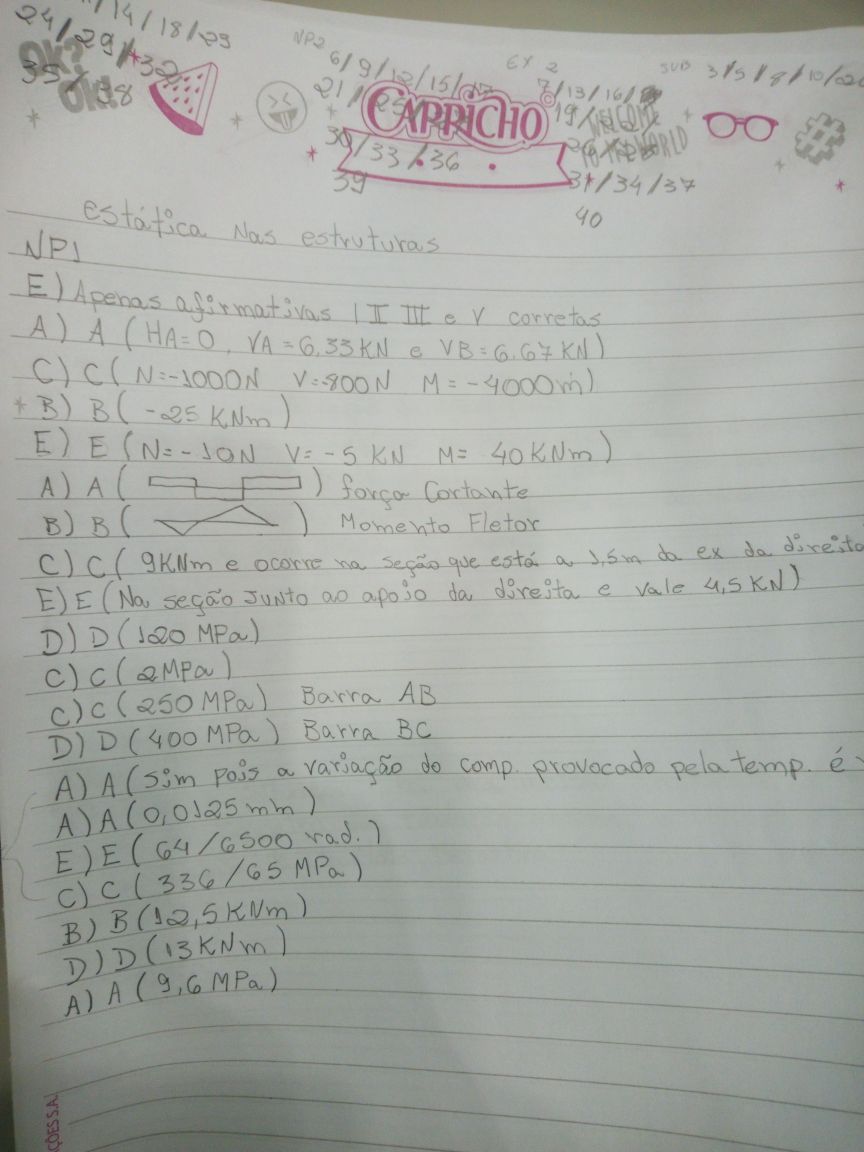 /14/18/23
24/29/*32
35/38
OK?
NP2
6/9/12/15/17
21/25/
30/33/36
39
EX 2
7/13/16/
19/
31/34/37
40
SUB 3/5/8/10/20
CAPRICHO
WELCOME
TO THE WORLD
#
estática Nas estruturas
NP1
E) Apenas afirmativas I II III e V corretas
A) A (HA=0, VA=6,33KN e VB=6,67KN)
C) C (N=-1000N V=-800N M=-4000m)
* B) B (-25 KNm)
E) E (N=-10N V=-5 KN M= 40KNm)
A) A ( ) força Cortante
B) B ( ) Momento Fletor
C) C ( 9KNm e ocorre na seção que está a 1,5m da ex da direita
E) E (Na seção junto ao apoio da direita e vale 4,5KN)
D) D (120 MPa)
C) C (2MPa)
C) C (250 MPa) Barra AB
D) D (400 MPa) Barra BC
A) A (sim pois a variação do comp. provocado pela temp. é
A) A (0,0125 mm)
E) E (64/6500 rad.)
C) C (336/65 MPa)
B) B (12,5KNm)
D) D (13KNm)
A) A (9,6 MPa)
ÇÕES S.A.